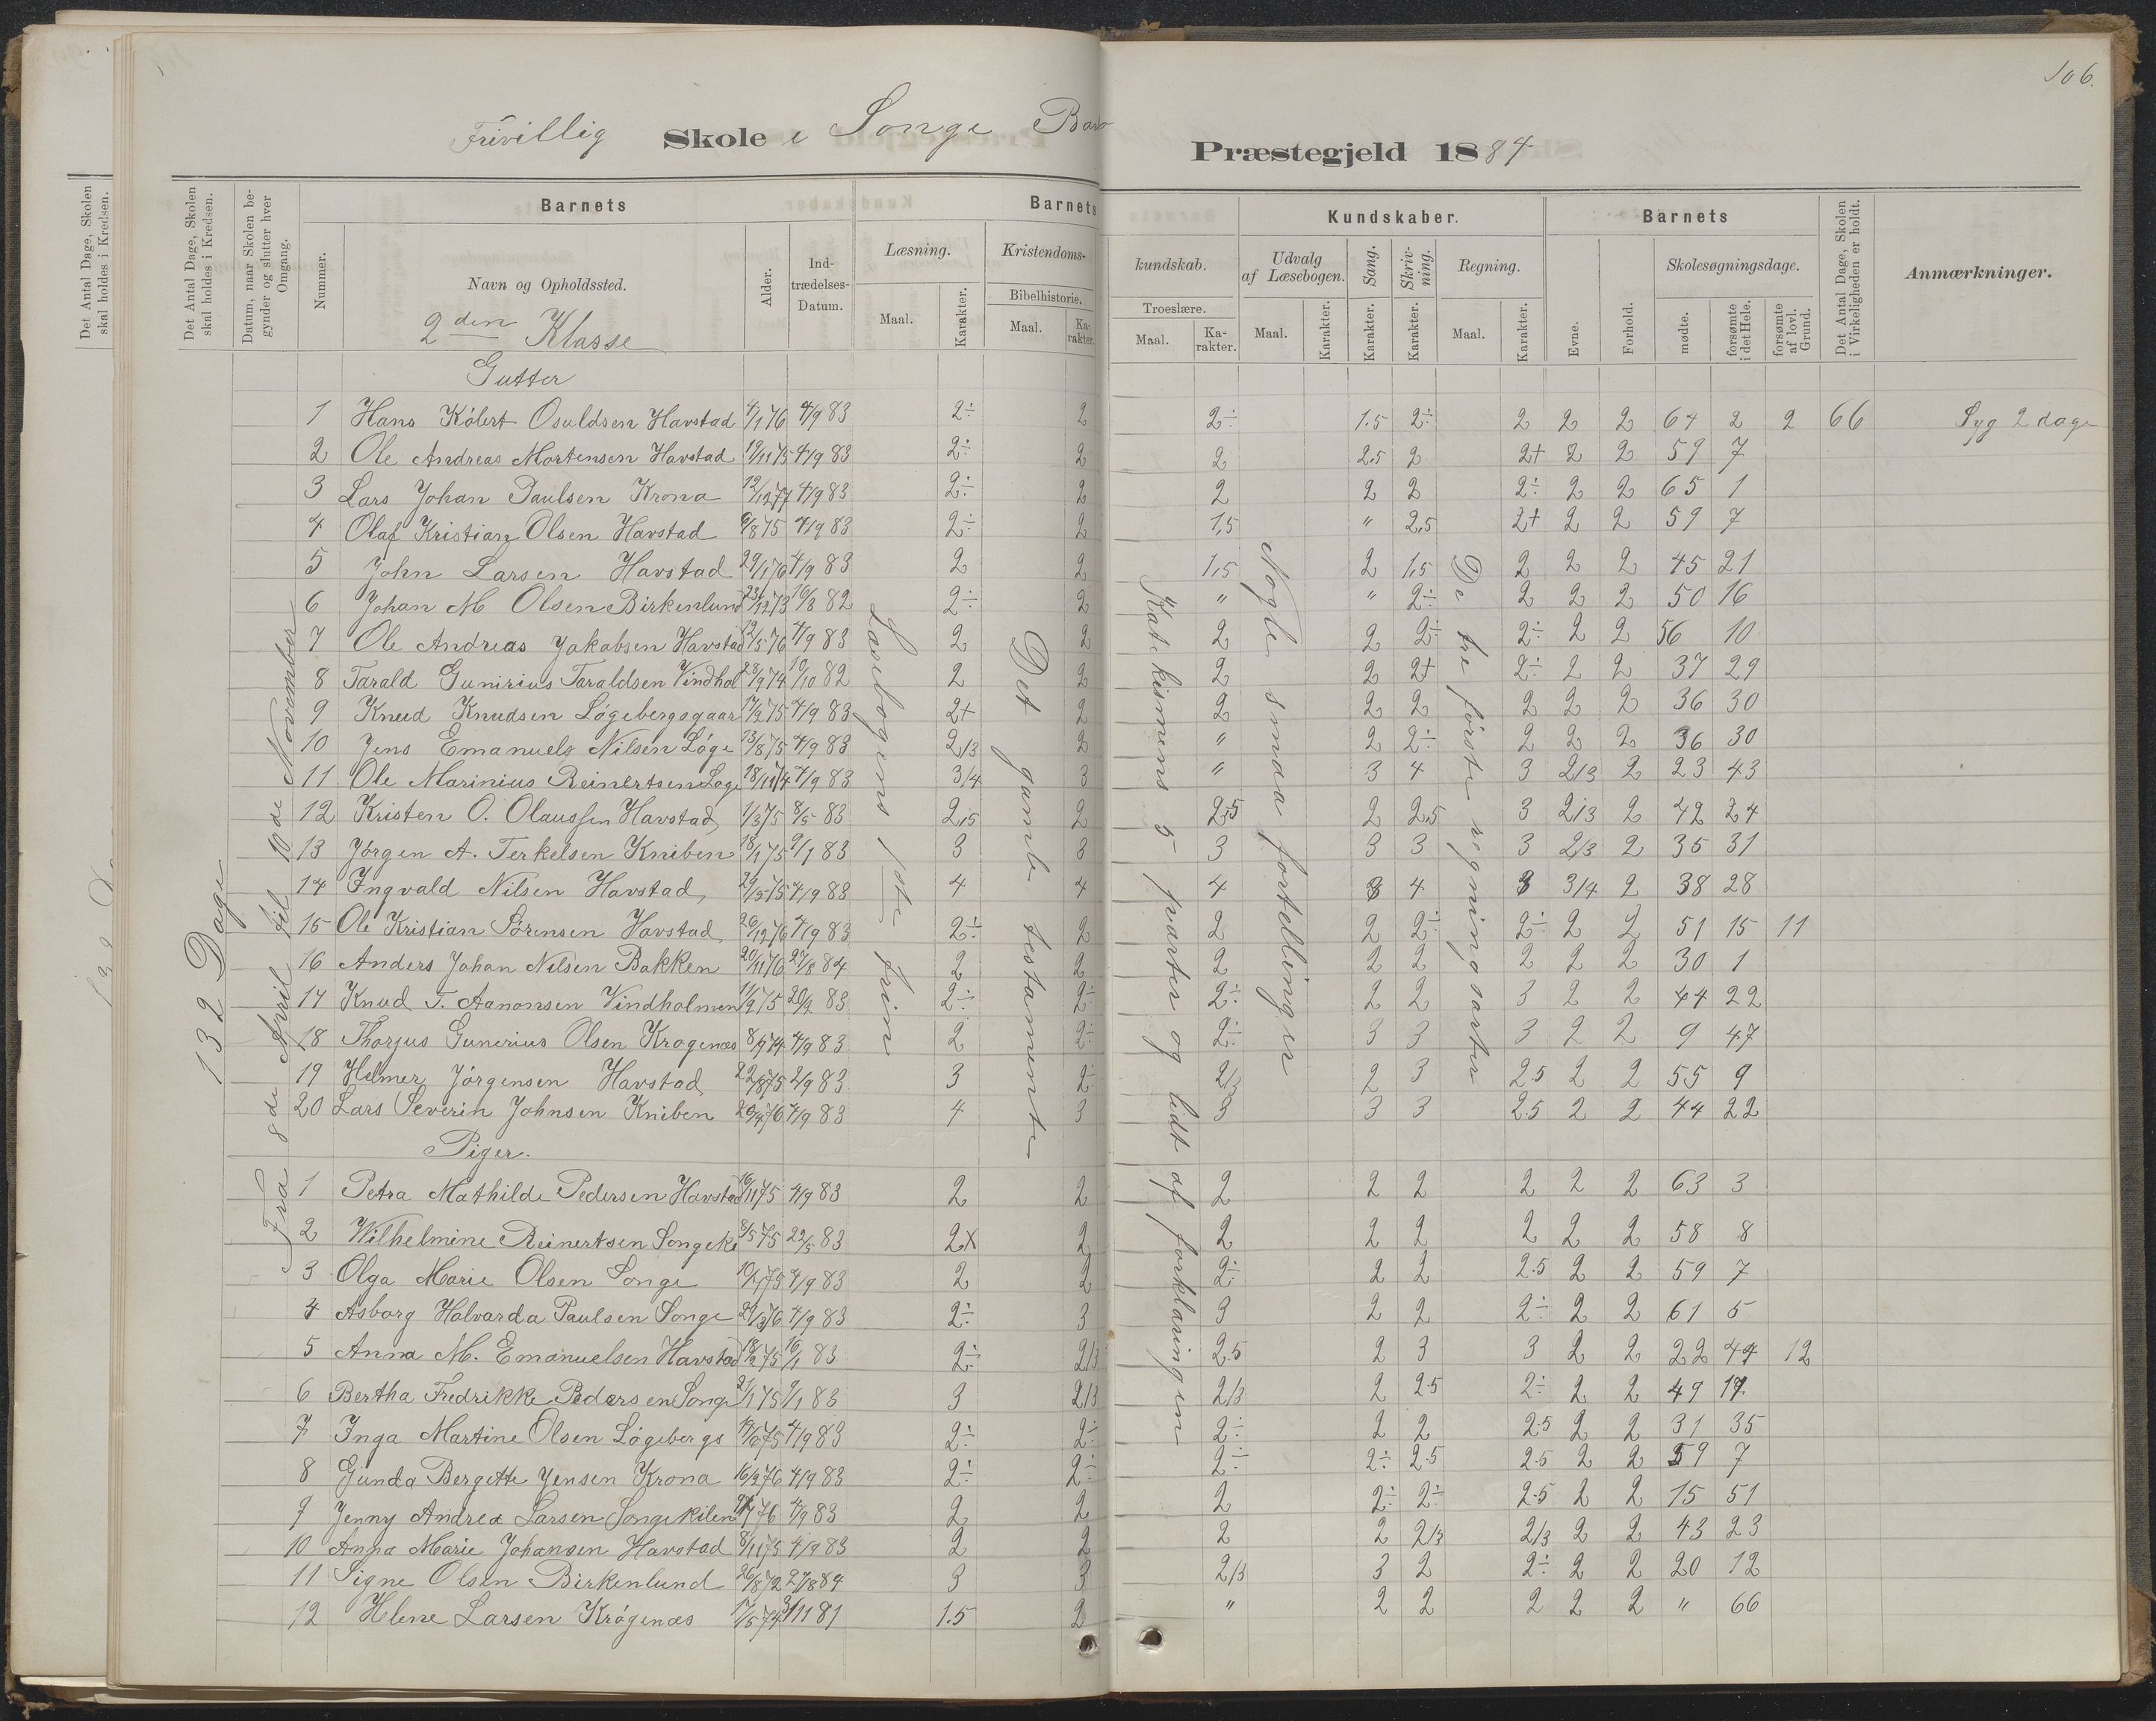 106.
Frivillig Skole i Songe Barbo
Præstegjeld 1884
Det Antal Dage, Skolen skal holdes i Kredsen.
Det Antal Dage, Skolen skal holdes i Kredsen.
Datum, naar Skolen begynder og slutter hver Omgang.
Barnets
Nummer.
Navn og Opholdssted.
Alder.
Indtrædelses-Datum.
Barnets
Læsning.
Maal.
Karakter.
Kristendoms-
Bibelhistorie.
Maal.
Karakter.
kundskab.
Troeslære.
Maal.
Karakter.
Kundskaber.
Udvalg af Læsebogen.
Maal.
Karakter.
Sang.
Karakter.
Skrivning.
Karakter.
Regning.
Maal.
Karakter.
Barnets
Evne.
Forhold.
Skolesøgningsdage.
mødte.
forsømte i det Hele.
forsømte af lovl. Grund.
Det Antal Dage, Skolen i Virkeligheden er holdt.
Anmærkninger.
2den Klasse
Gutter
132 Dage
Fra 8de April til 10de November
Læsebogens 1ste trin
Det gamle testamente
Katekismens 5 parter og lidt af forklaringen
Nogle smaa fortellinger
De tre første regningsarter
1 Hans Kölert Osuldsen Havstad 4/1 76 4/9 83 2÷ 2 2÷ 1.5 2÷ 2 2 2 64 2 2 66 Syg 2 dage
2 Ole Andreas Mortensen Havstad 19/11 75 4/9 83 2÷ 2 2 2.5 2 2+ 2 2 59 7
3 Lars Johan Paulsen Krona 12/12 77 4/9 83 2÷ 2 2 2 2 2÷ 2 2 65 1
4 Olaf Kristian Olsen Havstad 6/8 75 4/9 83 2÷ 2 1,5 " 2,5 2+ 2 2 59 7
5 John Larsen Havstad 29/1 76 4/9 83 2 2 1,5 2 1,5 2 2 2 45 21
6 Johan M Olsen Birkenlund 23/12 73 16/3 82 2÷ 2 " " 2÷ 2 2 2 50 16
7 Ole Andreas Jakobsen Havstad 12/5 76 4/9 83 2 2 2 2 2÷ 2÷ 2 2 56 10
8 Tarald Gunirius Taraldsen Vindhol 28/9 74 10/10 82 2 2 2 2 2+ 2÷ 2 2 37 29
9 Knud Knudsen Lögebergsgaar 17/2 75 4/9 83 2+ 2 2 2 2 2 2 2 36 30
10 Jens Emanuels Nilsen Löge 13/8 75 4/9 83 2/3 2 " 2 2÷ 2 2 2 36 30
11 Ole Marinius Reinertsen Loge 18/11 74 4/9 83 3/4 3 " 3 4 3 2/3 2 23 43
12 Kristen O. Olaussen Havstad 1/3 75 8/5 83 2,5 2 2,5 2 2,5 3 2/3 2 42 24
13 Jörgen A. Terkelsen Kniben 18/1 75 9/1 83 3 3 3 3 3 3 2/3 2 35 31
14 Ingvald Nilsen Havstad 4/9 83 4 4 4 3 4 3 3/4 2 38 28
15 Ole Kristian Sörensen Havstad 26/12 76 4/9 83 2÷ 2 2 2 2÷ 2÷ 2 2 51 15 11
16 Anders Johan Nilsen Bakken 20/11 76 27/8 84 2 2 2 2 2 2 2 2 30 1
17 Knud T. Aanonsen Vindholmen 11/9 75 20/2 83 2÷ 2÷ 2÷ 2 2 3 2 2 44 22
18 Thorjus Gunerius Olsen Krogenæs 8/9 74 4/9 83 2 2÷ 2÷ 3 3 3 2 2 9 47
19 Helmer Jörgensen Havstad 22/8 75 2/9 83 3 2÷ 2/3 2 3 2.5 2 2 55 9
20 Lars Severin Johnsen Kniben 20/4 76 4/9 83 4 3 3 3 3 2.5 2 2 44 22
Piger.
1 Petra Mathilde Pedersen Havstad 16/11 75 4/9 83 2 2 2 2 2 2 2 2 63 3
2 Wilhelmine Reinertsen Songeki 8/5 75 22/5 83 2x 2 2 2 2 2 2 2 58 8
3 Olga Marie Olsen Songe 10/1 75 4/9 83 2 2 2÷ 2 2 2.5 2 2 59 7
4 Asborg Halvarda Paulsen Songe 29/3 76 4/9 83 2÷ 3 3 2 2 2÷ 2 2 61 5
5 Anna M. Emanuelsen Havstad 18/2 75 16/1 83 2÷ 2/3 2.5 2 3 3 2 2 22 44 12
6 Bertha Fredrikke Pedersen Songe 2/1 75 9/1 83 3 2/3 2/3 2 2.5 2÷ 2 2 49 17
7 Inga Martine Olsen Lögebergs 14/6 75 4/9 83 2÷ 2÷ 2÷ 2 2 2.5 2 2 31 35
8 Gunda Bergette Jensen Krona 16/2 76 4/9 83 2÷ 2÷ 2÷ 2÷ 2.5 2.5 2 2 59 7
9 Jenny Andrea Larsen Songekilen 76 4/9 83 2 2 2 2÷ 2÷ 2.5 2 2 15 51
10 Anna Marie Johansen Havstad 8/11 75 4/9 83 2 2 2 2 2/3 2/3 2 2 43 23
11 Signe Olsen Birkenlund 26/8 72 27/8 84 3 3 2/3 3 2 2÷ 2 2 20 12
12 Helene Larsen Krögenæs 17/5 74 3/11 81 1.5 2 " 2 2 2 2 2 " 66